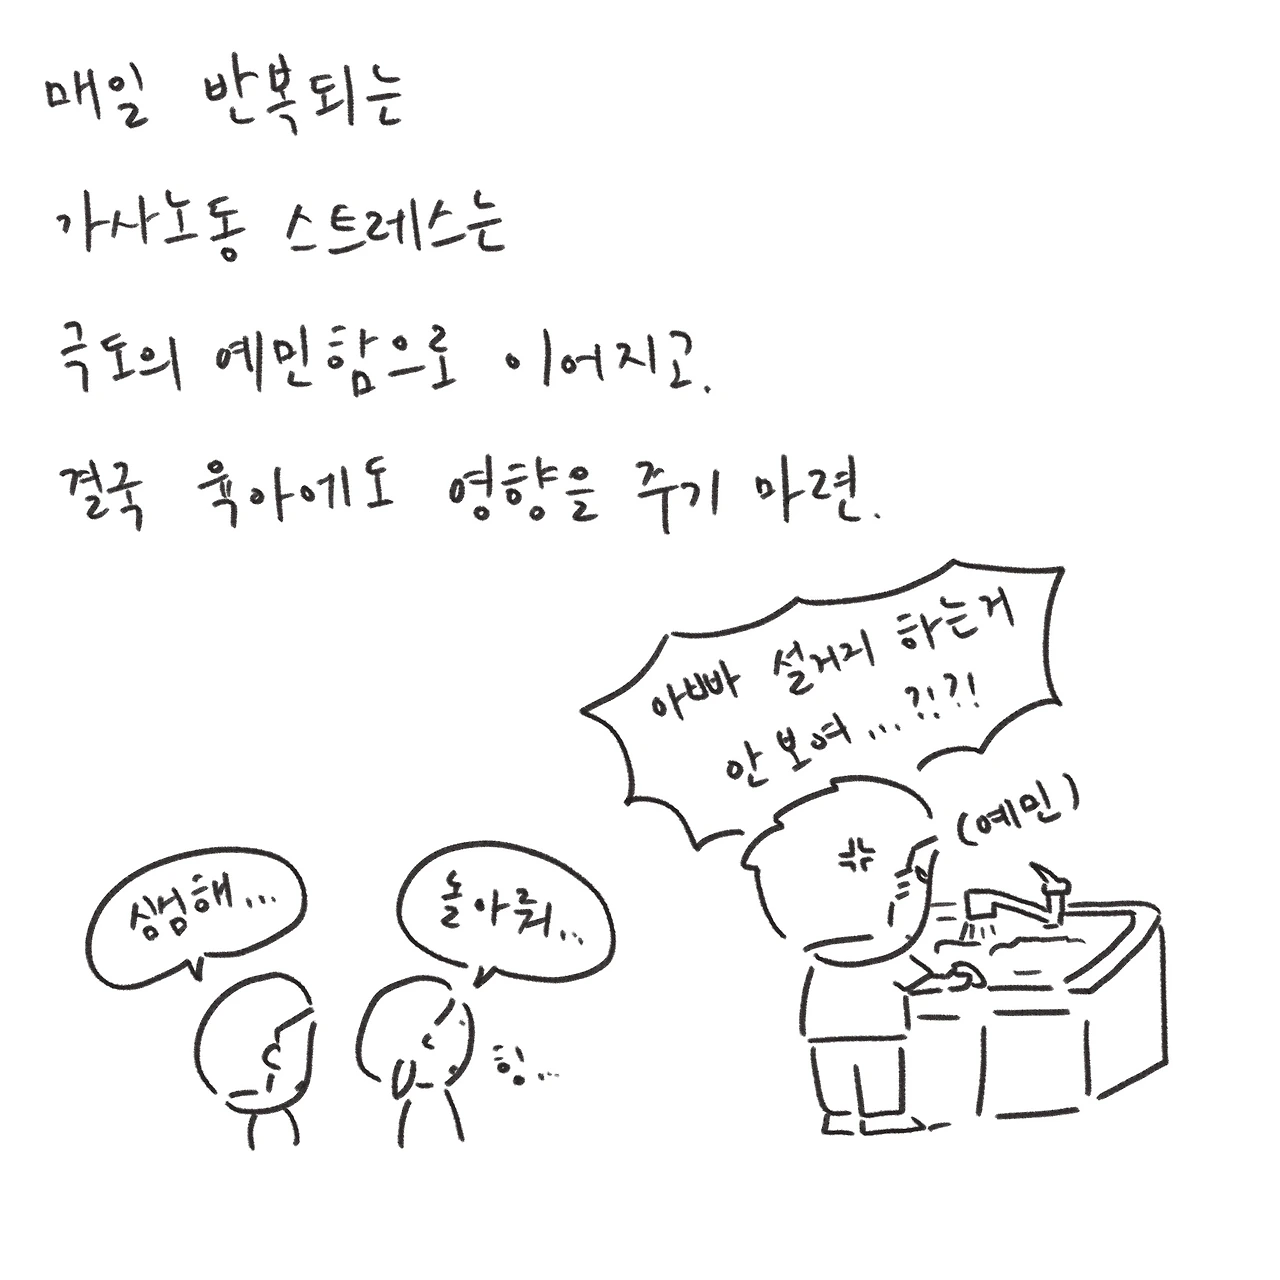 매일 반복되는
가사노동 스트레스는
극도의 예민함으로 이어지고.
결국 육아에도 영향을 주기 마련.
아빠 설거지 하는거
안 보여...?!?!
(예민)
심심해...
놀아줘...
힝...